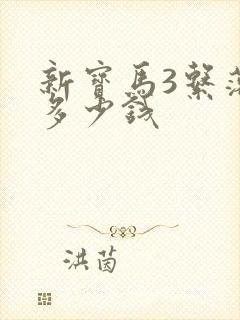 新寶馬3繫落
多少錢
洪茵